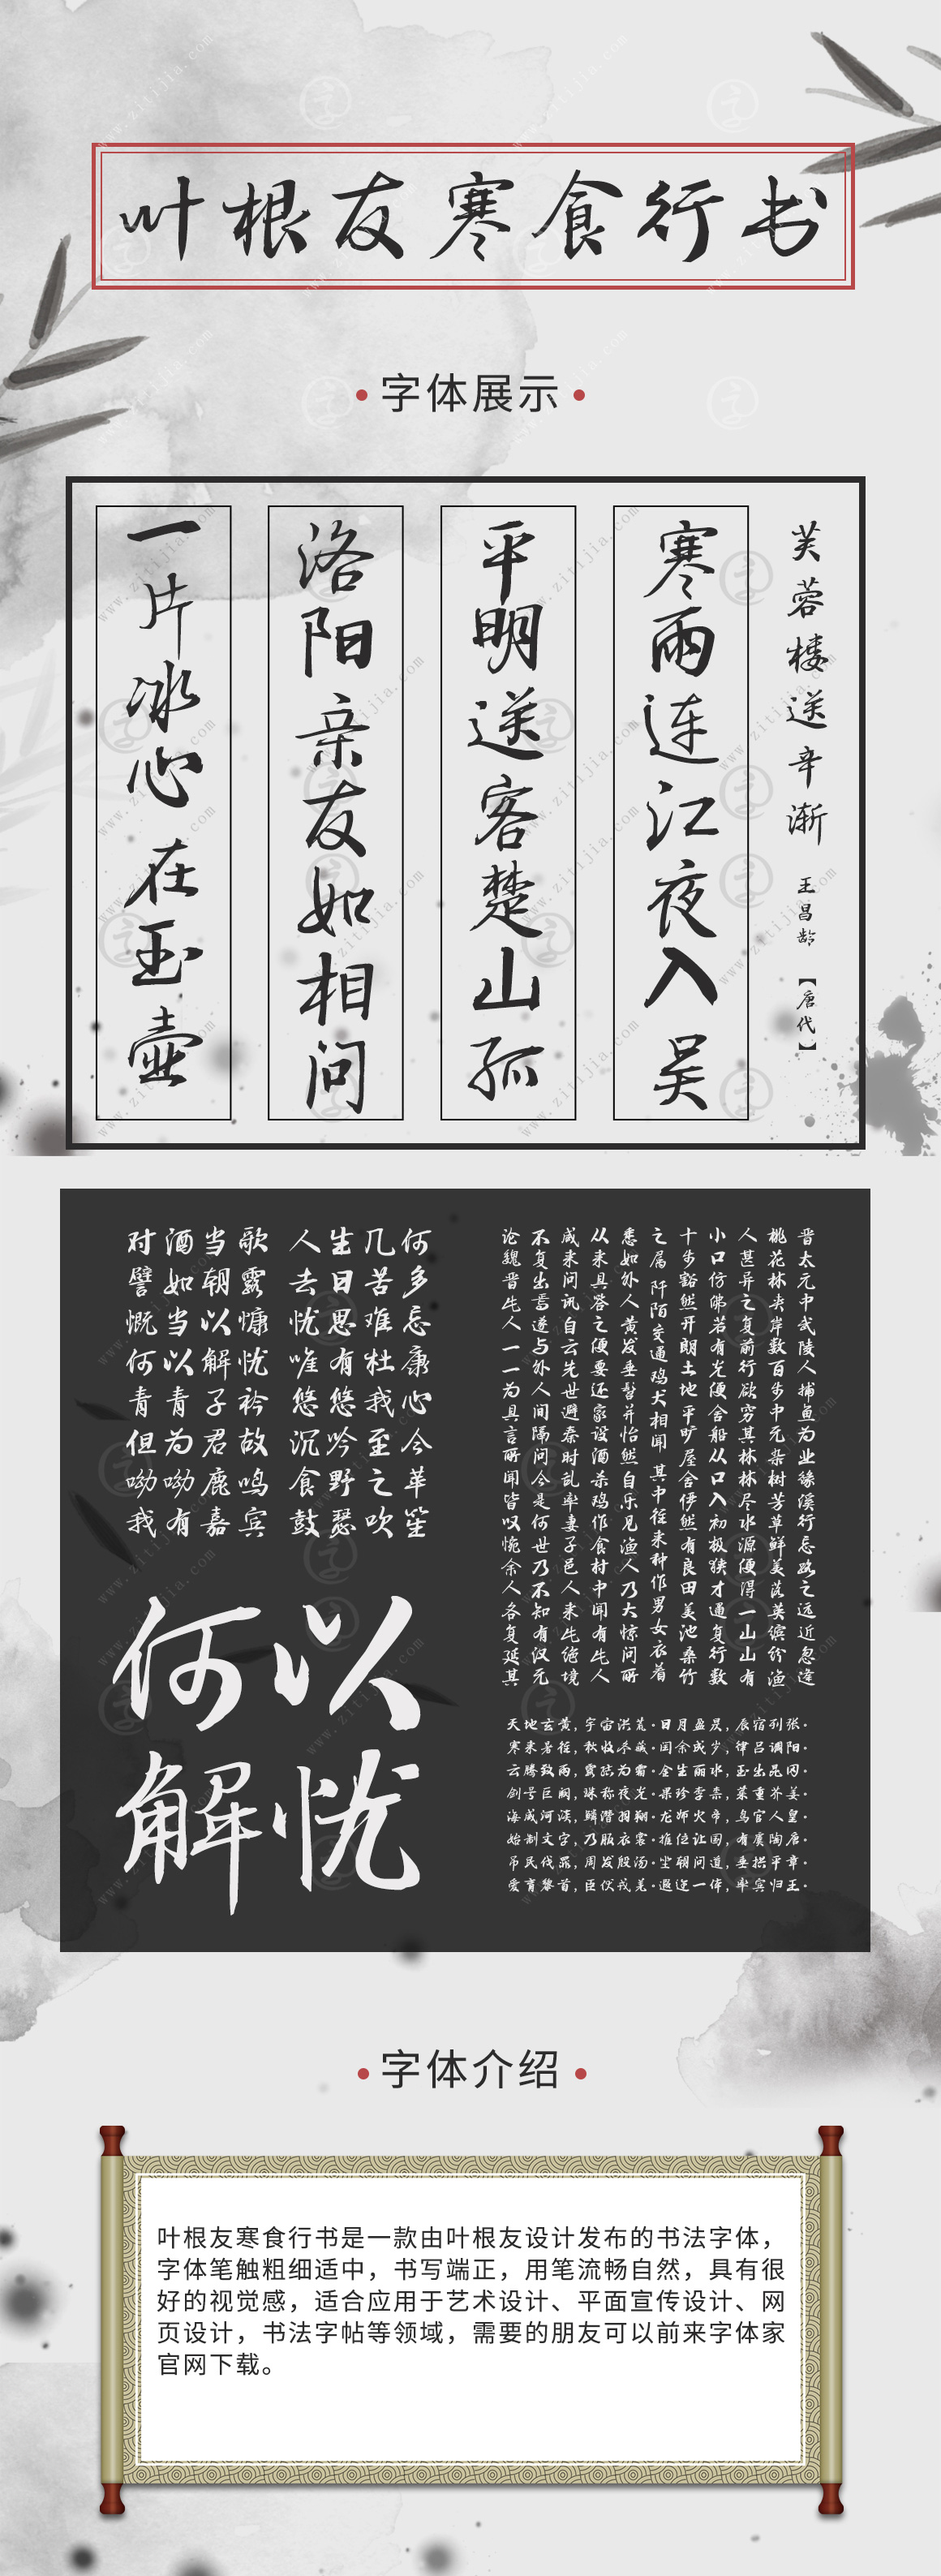 叶根友寒食行书
字体展示
芙蓉楼送辛渐 王昌龄 【唐代】
寒雨连江夜入吴
平明送客楚山孤
洛阳亲友如相问
一片冰心在玉壶
何多忘康心今苹笙
几苦难杜我至之吹
生日思有悠吟野瑟
人去忧唯悠沉食鼓
歌露慷忧衿故鸣宾
当朝以解子君鹿嘉
酒如当以青为呦有
对譬慨何青但呦我
何以
解忧
晋太元中武陵人捕鱼为业缘溪行忘路之远近忽逢
桃花林夹岸数百步中元杂树芳草鲜美落英缤纷渔
人甚异之复前行欲穷其林林尽水源便得一山山有
小口仿佛若有光便舍船从口入初极狭才通复行数
十步豁然开朗土地平旷屋舍俨然有良田美池桑竹
之属 阡陌交通鸡犬相闻 其中往来种作男女衣着
悉如外人黄发垂髫并怡然自乐见渔人乃大惊问所
从来具答之便要还家设酒杀鸡作食村中闻有此人
咸来问讯自云先世避秦时乱率妻子邑人来此绝境
不复出焉遂与外人间隔问今是何世乃不知有汉元
论魏晋此人一一为具言所闻皆叹惋余人各复延其
天地玄黄,宇宙洪荒.日月盈昃,辰宿列张.
寒来暑往,秋收冬藏.闰余成岁,律吕调阳.
云腾致雨,露结为霜.金生丽水,玉出昆冈.
剑号巨阙,珠称夜光.果珍李柰,菜重芥姜.
海咸河淡,鳞潜羽翔.龙师火帝,鸟官人皇.
始制文字,乃服衣裳.推位让国,有虞陶唐.
吊民伐罪,周发殷汤.坐朝问道,垂拱平章.
爱育黎首,臣伏戎羌.遐迩一体,率宾归王.
字体介绍
叶根友寒食行书是一款由叶根友设计发布的书法字体，
字体笔触粗细适中，书写端正，用笔流畅自然，具有很
好的视觉感，适合应用于艺术设计、平面宣传设计、网
页设计，书法字帖等领域，需要的朋友可以前来字体家
官网下载。
www.zitijia.com